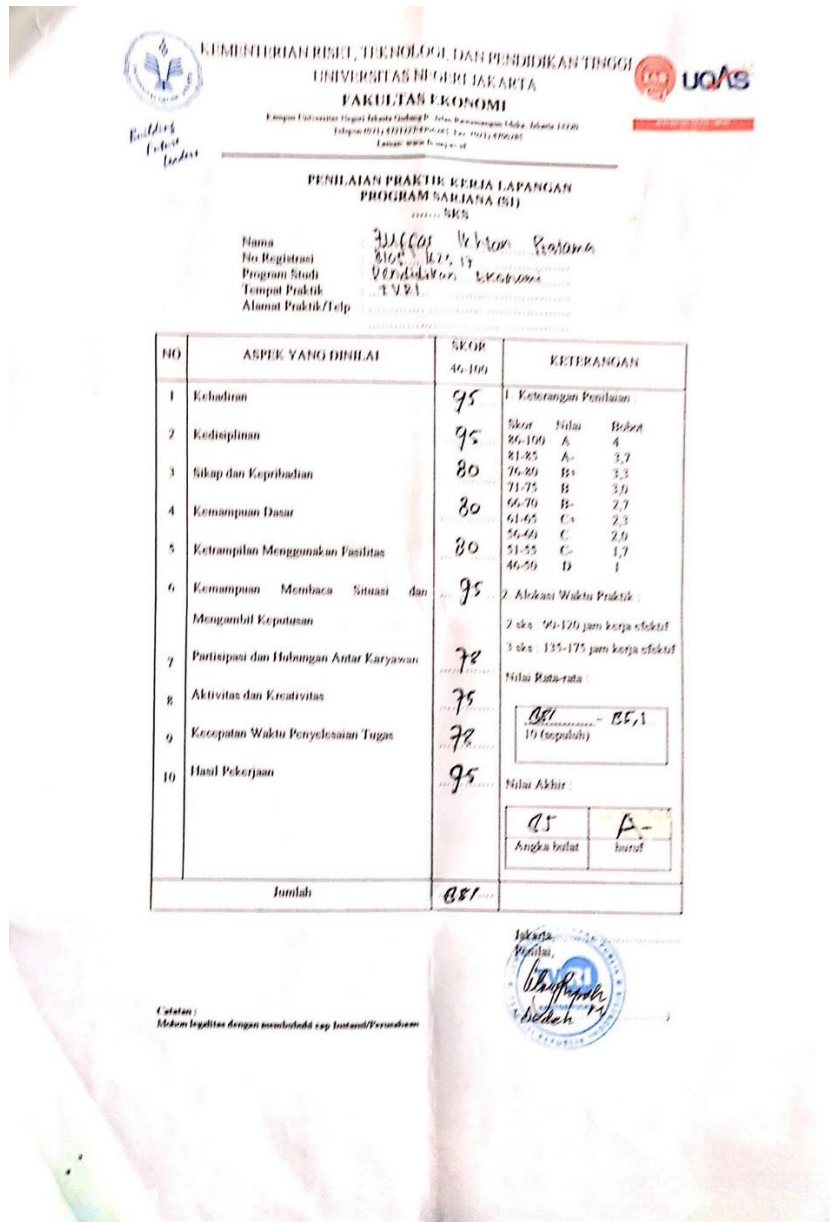 KEMENTERIAN RISET, TEKNOLOGI, DAN PENDIDIKAN TINGGI
UNIVERSITAS NEGERI JAKARTA
FAKULTAS EKONOMI
Kampus Universitas Negeri Jakarta Gedung R, Jalan Rawamangun Muka, Jakarta 13220
Building
Future
Leaders
UQAS
PENILAIAN PRAKTIK KERJA LAPANGAN
PROGRAM SARJANA (S1)
....... SKS
Nama : Ikhlan Pratama
No Registrasi
Program Studi : Pendidikan Ekonomi
Tempat Praktik : TVRI
Alamat Praktik/Telp
NO ASPEK YANG DINILAI SKOR 46-100 KETERANGAN
1 Kehadiran 95
2 Kedisiplinan 95
3 Sikap dan Kepribadian 80
4 Kemampuan Dasar 80
5 Ketrampilan Menggunakan Fasilitas 80
6 Kemampuan Membaca Situasi dan Mengambil Keputusan 95
7 Partisipasi dan Hubungan Antar Karyawan 78
8 Aktivitas dan Kreativitas 75
9 Kecepatan Waktu Penyelesaian Tugas 78
10 Hasil Pekerjaan 95
Jumlah 851
1. Keterangan Penilaian :
Skor Nilai Bobot
86-100 A 4
81-85 A- 3,7
76-80 B+ 3,3
71-75 B 3,0
66-70 B- 2,7
61-65 C+ 2,3
56-60 C 2,0
51-55 C- 1,7
46-50 D 1
2. Alokasi Waktu Praktik :
2 sks : 90-120 jam kerja efektif
3 sks : 135-175 jam kerja efektif
Nilai Rata-rata :
851 - 85,1
10 (sepuluh)
Nilai Akhir :
85 A-
Angka bulat huruf
Jakarta,
Penilai,
TVRI
Catatan :
Mohon legalitas dengan membubuhi cap Instansi/Perusahaan